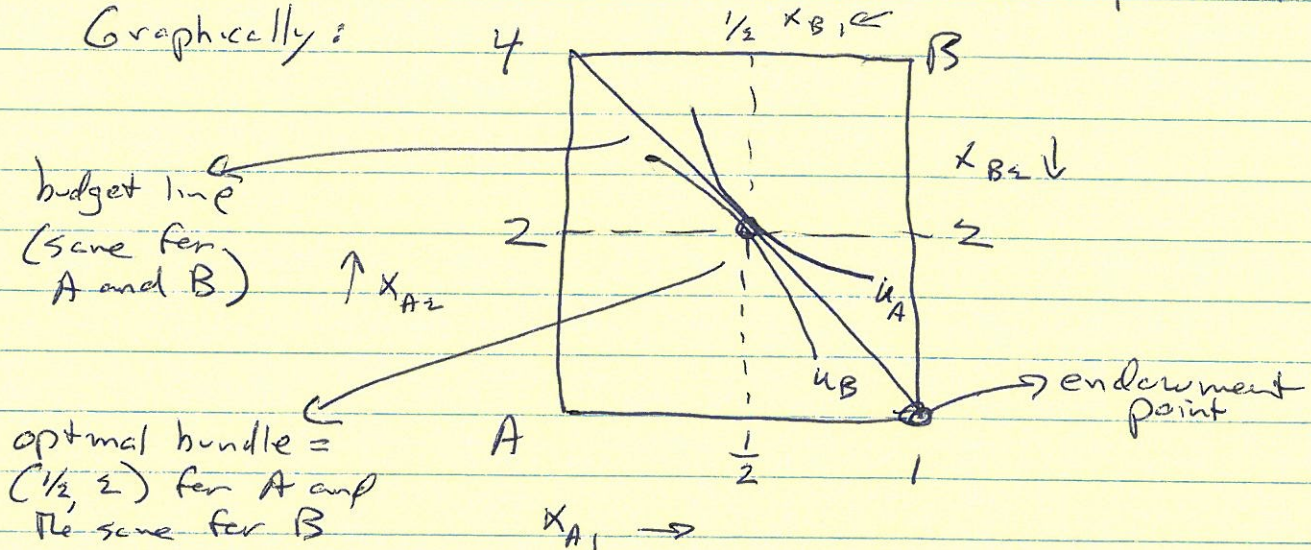 Graphically:
4
1/2 x_B1 ←
B
budget line
(same for
A and B)
x_B2 ↓
2
2
↑ x_A2
u_A
u_B
endowment
point
A
1/2
1
optimal bundle =
(1/2, 2) for A and
the same for B
x_A1 →